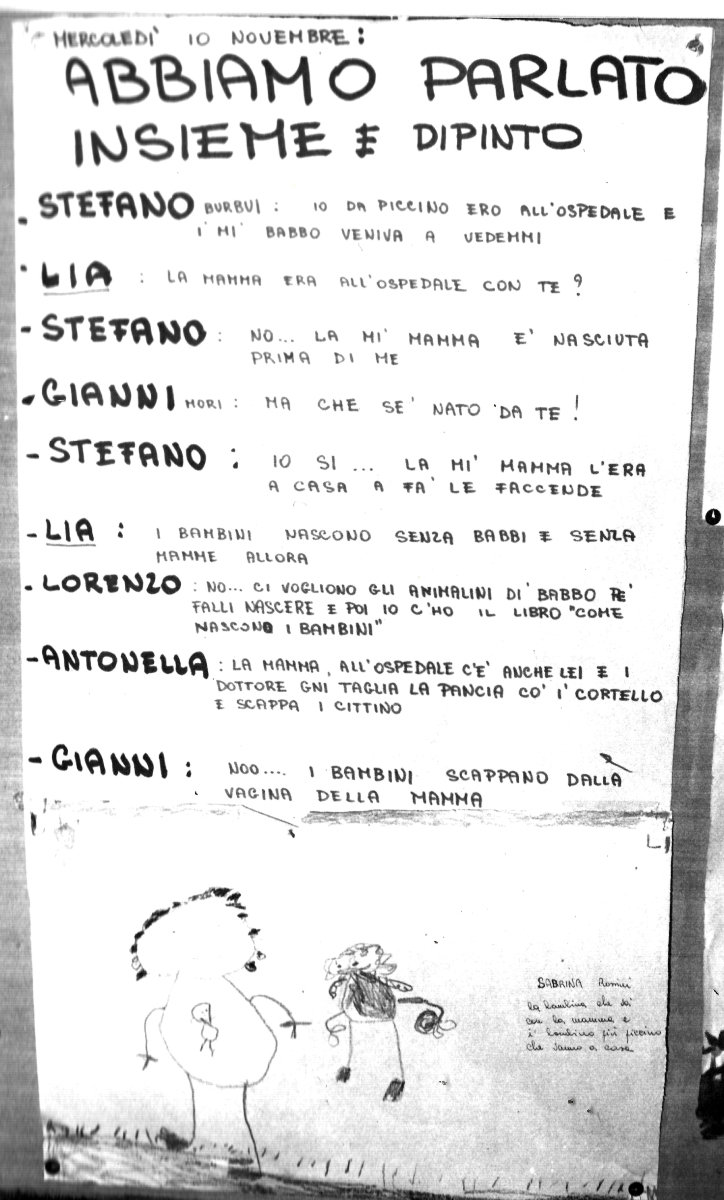 MERCOLEDI' 10 NOVEMBRE:
ABBIAMO PARLATO
INSIEME E DIPINTO
- STEFANO BURBUI: IO DA PICCINO ERO ALL'OSPEDALE E
I' MI' BABBO VENIVA A VEDEMMI
- LIA: LA MAMMA ERA ALL'OSPEDALE CON TE?
- STEFANO: NO... LA MI' MAMMA E' NASCIUTA
PRIMA DI ME
- GIANNI MORI: MA CHE SE' NATO DA TE!
- STEFANO: IO SI... LA MI' MAMMA L'ERA
A CASA A FA' LE FACCENDE
- LIA: I BAMBINI NASCONO SENZA BABBI E SENZA
MAMME ALLORA
- LORENZO: NO... CI VOGLIONO GLI ANIMALINI DI' BABBO PE'
FALLI NASCERE E POI IO C'HO IL LIBRO "COME
NASCONO I BAMBINI"
- ANTONELLA: LA MAMMA, ALL'OSPEDALE C'E' ANCHE LEI E I
DOTTORE GNI TAGLIA LA PANCIA CO' I' CORTELLO
E SCAPPA I CITTINO
- GIANNI: NOO.... I BAMBINI SCAPPANO DALLA
VAGINA DELLA MAMMA
SABRINA
la bambina che dà
con la mamma e
i' bambino più piccino
che vanno a casa